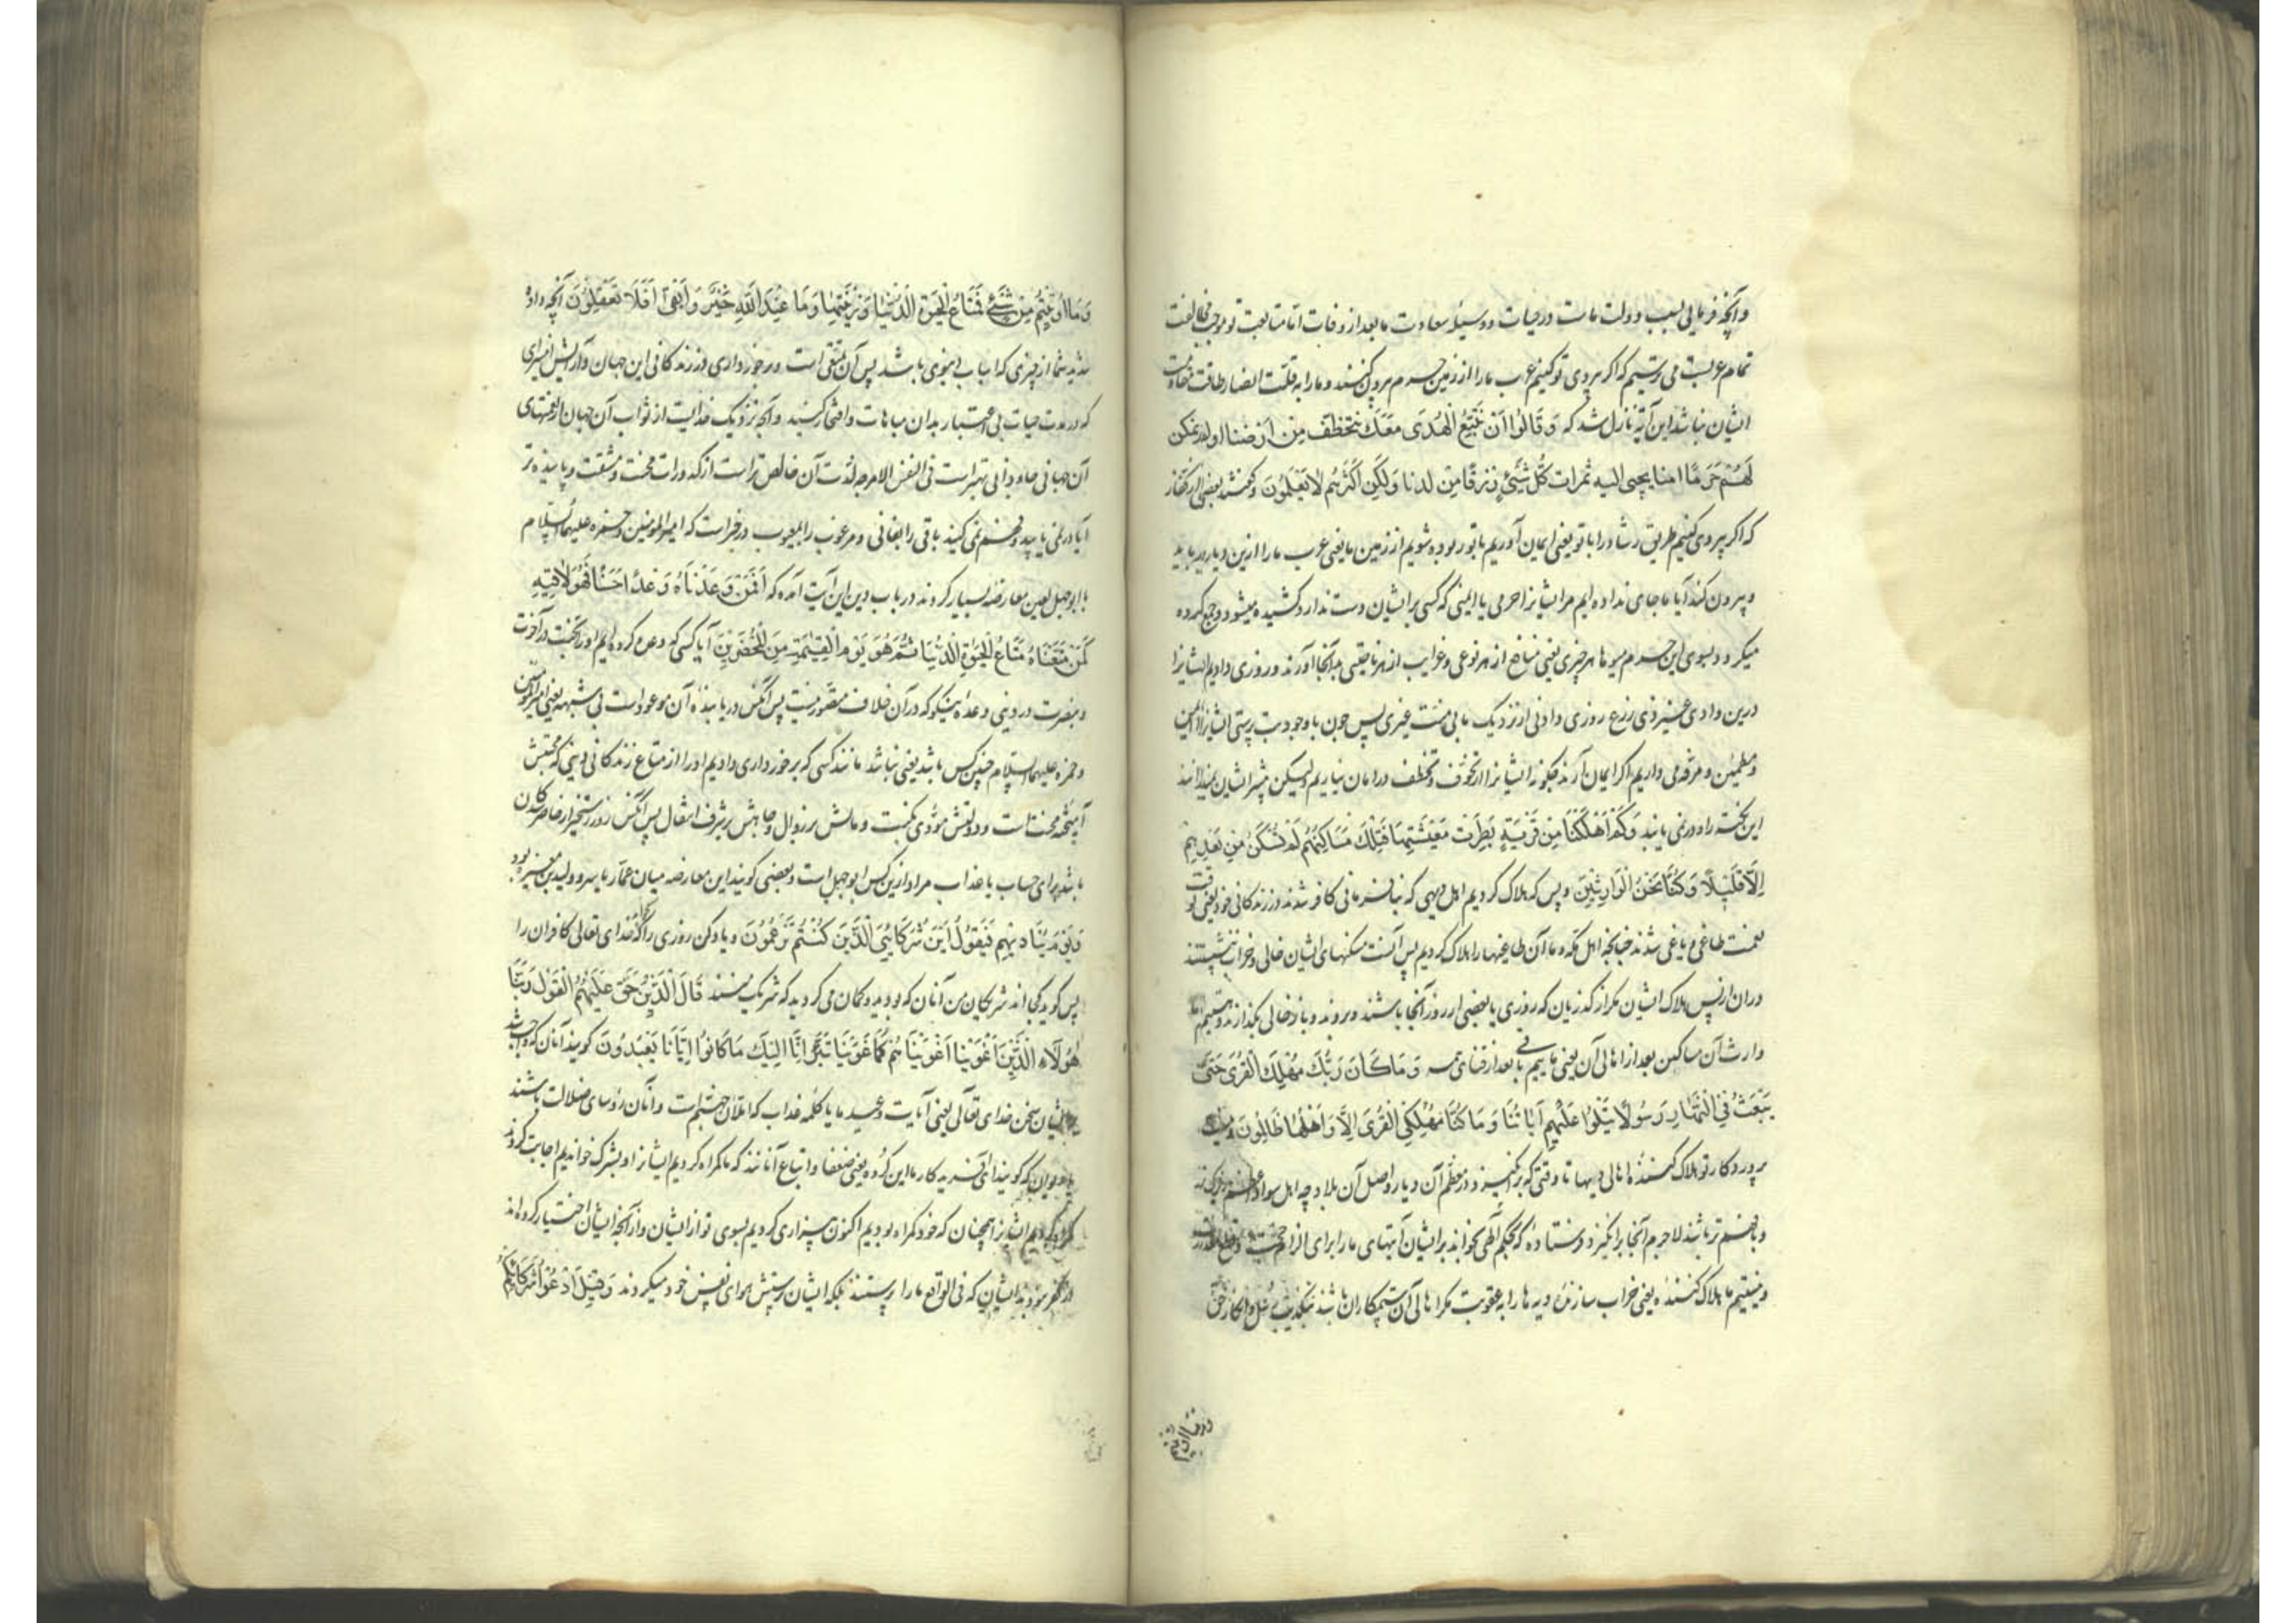 و آنچه فرمایی سبب دولت ماست در حیات و وسیله سعادت ما بعد از وفات اما متابعت تو موجب مخالفت
تمام عربست می ترسیم که اگر پیروی تو کنیم عرب ما را از زمین حرم بیرون کنند و ما را به قلت انصار طاقت مقاومت
ایشان نباشد این آیه نازل شد که وَقَالُوا اَنْ نَتَّبِعِ الْهُدَی مَعَكَ نتخَطَّف مِن اَرْضنا اولم نمکن
لَهُمْ حَرَمًا امنا یجبی الیه ثمرات کُلِّ شَیْئٍ رِزْقًا مِن لدنا وَلٰکِنَّ اَکْثَرَهُم لَا یَعْلَمُونَ و گفتند بعضی از کفار
که اگر پیروی کنیم طریق رشاد را با تو یعنی ایمان آوریم با تو ربوده شویم از زمین ما یعنی عرب ما را ازین دیار بر باید
و بیرون کند آیا ما جای نداده ایم مر ایشانرا حرمی با ایمنی که کسی بر ایشان دست ندارد کشیده میشود و جمع کرده
میگردد بسوی این حرم میوها هر چیزی یعنی منافع از هر نوعی و غرایب از هر ناحیتی به آنجا آورند و روزی دادیم ایشانرا
درین وادی غیر ذی زرع روزی دادنی از نزدیک ما بی منت غیری پس چون با وجود بت پرستی ایشانرا ایمن
و مطمئن و مرفه می داریم اگر ایمان آرند چگونه ایشانرا از تخوف و تخطف در امان نیاریم ولیکن بیشتر ایشان نمیدانند
این نکته را و در نمی یابند وَکَمْ اَهْلَکْنَا مِن قَرْیَةٍ بَطِرَت مَعِیْشَتِهَا فَتِلْكَ مَسَاکِنُهُمْ لَمْ تُسْکَنْ مِن بَعْدِهِم
اِلَّا قَلِیْلًا وَکُنَّا نَحْنُ الْوَارِثِیْنَ و بس که هلاک کردیم اهل دیهی که بنافرمانی کافر شدند در زندگانی خود یعنی بوقت
نعمت طاغی و یاغی شدند چنانچه اهل مکه و ما آن طاغیها را هلاک کردیم پس آنست مسکنهای ایشان خالی و خراب ننشستند
در آن از پس هلاک ایشان مگر از گذریان که روزی یا بعضی از روز آنجا باشند و بروند و باز خالی بگذارند و هستیم ما
وارث آن مساکن بعد از اهالی آن یعنی ماییم باقی بعد از فنای همه وَمَا کَانَ رَبُّكَ مُهْلِكَ الْقُرَی حَتَّی
یَبْعَثَ فِی اُمِّهَا رَسُولًا یَتْلُوا عَلَیْهِم آیَاتُنَا وَمَا کُنَّا مُهْلِکِی الْقُرَی اِلَّا وَاَهْلُهَا ظَالِمُونَ و نیست
پروردگار تو هلاک کننده اهالی دیهها تا وقتی که برانگیزد در معظم آن دیار و اصل آن بلاد چه اهل سواد اعظم
و بافهم تر باشند لاجرم آنجا برانگیزد فرستاده که بحکم الهی بخواند بر ایشان آیتهای ما را برای الزام حجت و قطع معذرت
و نیستیم ما هلاک کننده یعنی خراب سازنده دیه ها را به عقوبت مگر اهالی آن ستمکاران باشند بتکذیب رسل و انکار حق
وما اوتیتم
وَمَا اُوتِیْتُمْ مِن شَیْئٍ فَمَتَاعُ الْحَیٰوةِ الدُّنْیَا وَزِیْنَتُهَا وَمَا عِنْدَ اللّٰهِ خَیْرٌ وَاَبْقَی اَفَلَا تَعْقِلُوْنَ آنچه داده
شدید شما از چیزی که اسباب دنیوی باشد پس آن متقی است و برخورداری در زندگانی این جهان و آرایش
که در مدت حیات بی اعتبار بدان مباهات و افتخار کنید و آنچه نزدیک خدایست از ثواب آن جهان از نعمتهای
آن جهانی جاودانی بهتر است فی النفس الامر چه لذت آن خالص تر است از کدورات محنت و مشقت و پاینده تر
آیا در نمی یابید و فهم نمی کنید باقی را بفانی و مرغوب را بمعیوب در خبر است که امیر المومنین و حمزه علیهما السلام
با ابوجهل لعین معارضه بسیار کردند در باب دین این آیت آمد که اَفَمَن وَعَدْنَاهُ وَعْدًا حَسَنًا فَهُوَ لَاقِیْهِ
کَمَنْ مَتَّعْنَاهُ مَتَاعَ الْحَیٰوةِ الدُّنْیَا ثُمَّ هُوَ یَوْمَ الْقِیٰمَةِ مِنَ الْمُحْضَرِیْنَ آیا کسی که وعده کرده ایم او را بجنت در آخرت
و بنصرت در دنیی وعده نیکو که در آن خلاف متصور نیست پس آنکس دریابنده آن موعود است بی شبهه یعنی امیر المومنین
و حمزه علیهما السلام چنین کس باشد یعنی نباشد مانند کسی که برخورداری دادیم او را از متاع زندگانی دنیی که محبتش
آمیخته محنت است و دولتش مؤدی نکبت و مالش بر زوال و جاهش بر شرف انتقال پس آنکس روز رستخیز از حاضر کردگان
باشد برای حساب یا عذاب مراد ازین کس ابوجهل است و بعضی گویند این معارضه میان عمار یاسر و ولید بن مغیره بود
وَیَوْمَ یُنَادِیْهِم فَیَقُولُ اَیْنَ شُرَکَائِیَ الَّذِیْنَ کُنْتُمْ تَزْعُمُوْنَ و یاد کن روزی را که خدای تعالی کافران را
پس گوید کجااند شریکان من آنان که بودید و گمان می کردید که شریک منند قَالَ الَّذِیْنَ حَقَّ عَلَیْهِمُ الْقَوْلُ رَبَّنَا
هٰؤُلَآءِ الَّذِیْنَ اَغْوَیْنَا اَغْوَیْنَاهُمْ کَمَا غَوَیْنَا تَبَرَّءْنَا اِلَیْكَ مَا کَانُوْا اِیَّانَا یَعْبُدُوْنَ گویند آنان که واجب شد
بر ایشان سخن خدای تعالی یعنی آیات وعید ما یا کلمه عذاب که املان جهنم است و آنان رؤسای ضلالت باشند
یا دیوان که گویند ای آفریدگار ما این گروه یعنی ضعفا و اتباع آنانند که ما گمراه کردیم ایشانرا و بشرک خواندیم اجابت کردند
گمراه کردیم ایشانرا همچنان که خود گمراه بودیم اکنون بیزاری کردیم بسوی تو از ایشان و از آنچه ایشان اختیار کرده اند
از کفر نبودند ایشان که فی الواقع ما را پرستند بلکه ایشان پرستش هوای نفس خود میکردند وَقِیْلَ ادْعُوْا شُرَکَائَکُمْ